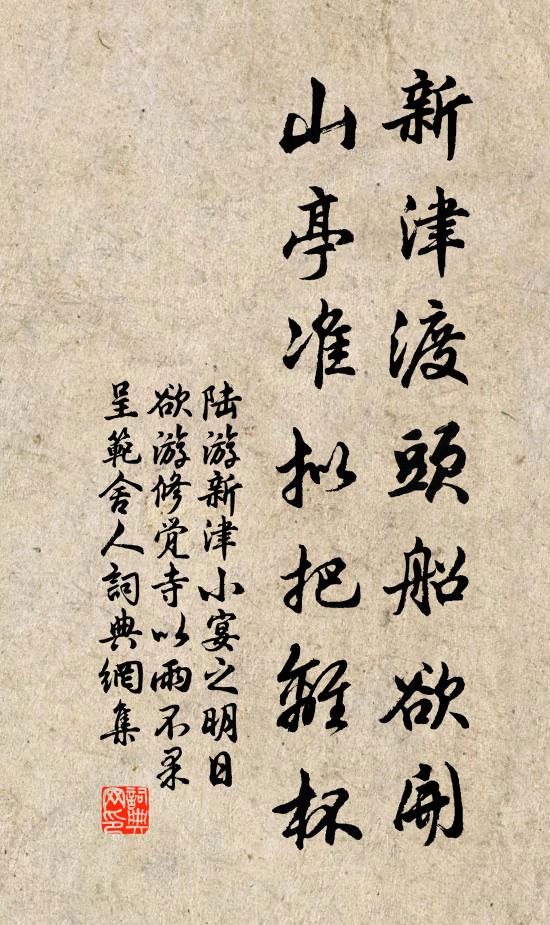 新津渡頭船欲開
山亭准拟把離杯
陆游新津小宴之明日
欲游修觉寺以雨不果
呈範舍人詞典網集
詞典
网印